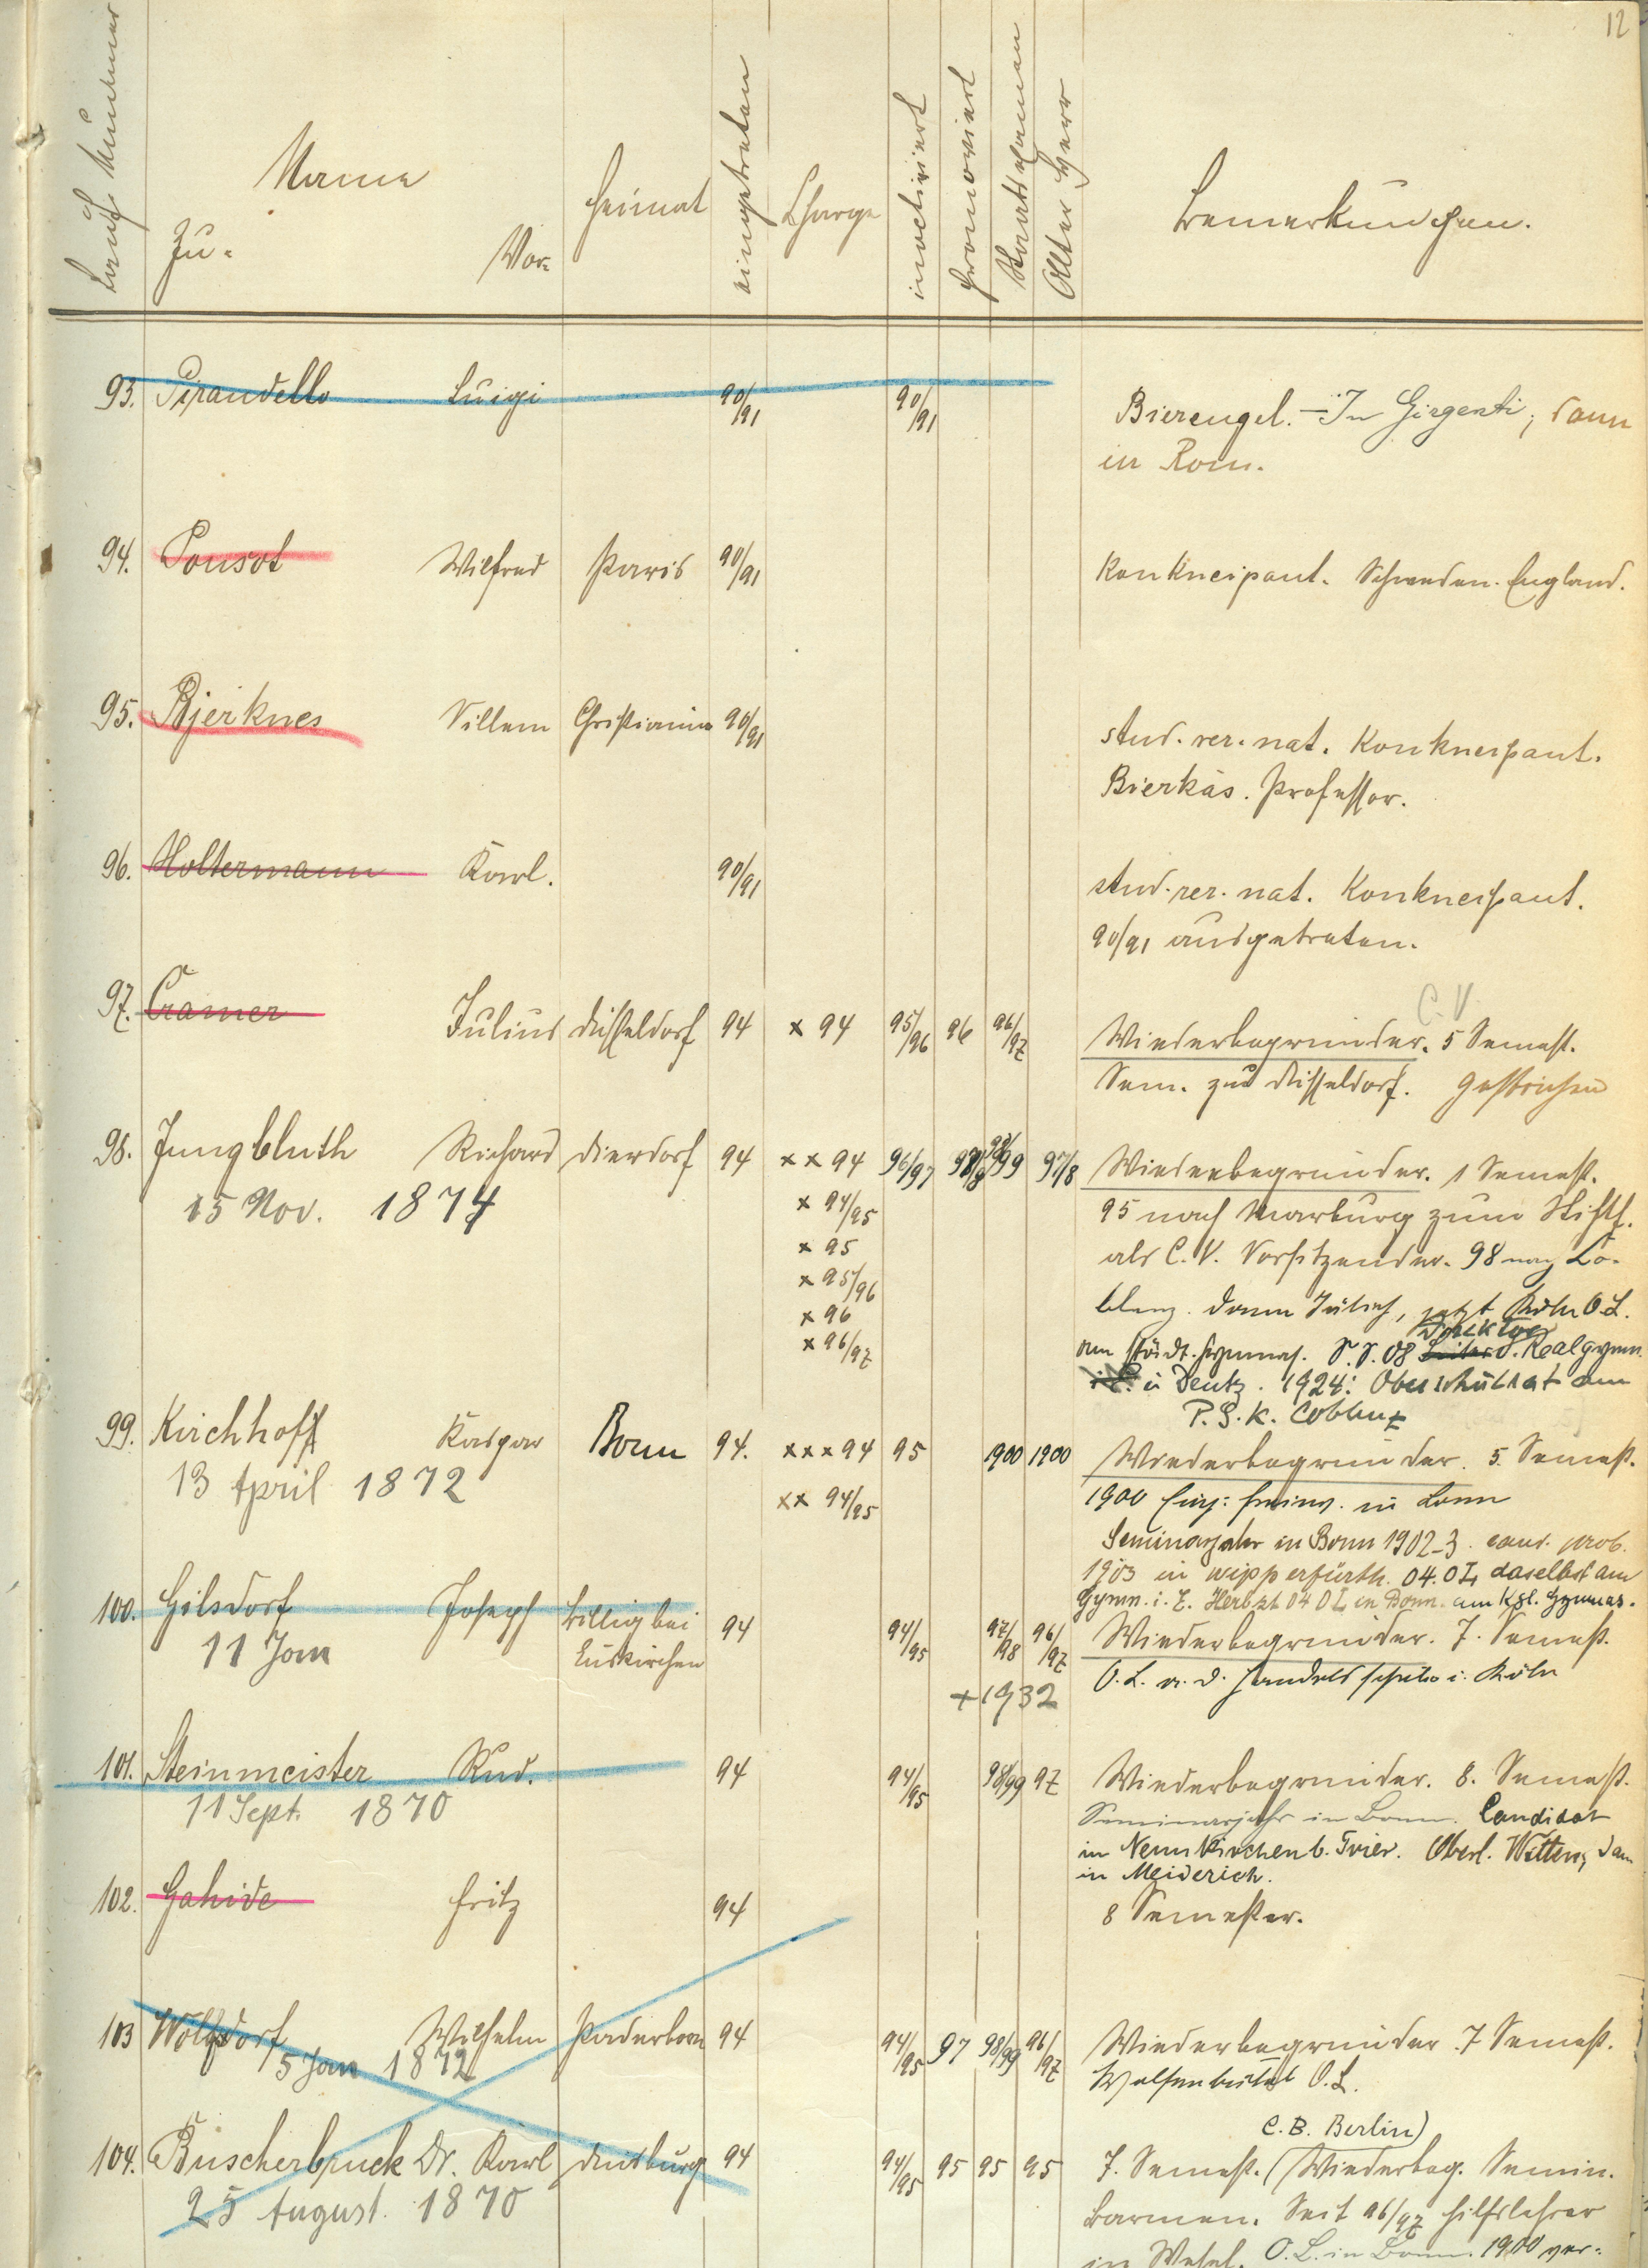 12
Laufd. Nummer
Name
Zu-
Vor-
Heimat
eingetreten
Charge
inactiviert
promoviert
Staatsexamen
Alter Herr
Bemerkungen.
93. Pirandello Luigi 90/91 90/91 Bierengel. – In Girgenti; dann
in Rom.
94. Pousot Wilfred Paris 90/91 Konkneipant. Schweden. England.
95. Bjerknes Villem Christiania 90/91 stud. rer. nat. Konkneipant.
Bierkäs. Professor.
96. Holtermann Karl. 90/91 stud. rer. nat. Konkneipant.
90/91 ausgetreten.
C.V.
97. Cramer Julius Düsseldorf 94 x 94 95/96 96 96/97 Wiederbegründer. 5 Semest.
Sem. zu Düsseldorf. Gestrichen
98. Jungbluth Richard Dierdorf 94 x x 94 96/97 98/99 97/8 Wiederbegründer. 1 Semest.
15 Nov. 1874 x 94/95 95 nach Marburg zum Stiftf.
x 95 als C.V. Vorsitzender. 98 nach Co-
x 95/96
x 96 blenz. dann Jülich, jetzt Köln O.L.
Direktor
x 96/97 am städt. Gymnas. S.S. 08 Leiter d. Realgymn.
i. Deutz. 1924: Oberschulrat am
P.S.K. Coblenz
99. Kirchhoff Kaspar Bonn 94. xxx 94 95 1900 1900 Wiederbegründer. 5. Semest.
13 April 1872 xx 94/95 1900 Einj: Freiw. in Bonn
Seminarjahr in Bonn 1902-3. cand. prob.
1903 in Wipperfürth. 04. O.L. daselbst am
Gymn. i. E. Herbst 04 O.L. in Bonn. am Kgl. Gymnas.
100. Gilsdorf Joseph Billig bei 94 94/95 97/98 96/97 Wiederbegründer. 7. Semest.
11 Jan Euskirchen
+1932 O.L. a. d. Handelsschule i. Köln
101. Steinmeister Rud. 94 94/95 98/99 97 Wiederbegründer. 8. Semest.
11 Sept. 1870 Seminarjahr in Bonn. Candidat
in Neunkirchen b. Trier. Oberl. Witten, dann
in Meiderich.
102. Gahide Fritz 94 8 Semester.
103 Wolfsdorf Wilhelm Paderborn 94 94/95 97 98/99 96/97 Wiederbegründer 7 Semest.
5 Jan 1872 Wolfenbüttel O.L.
C.B. Berlin)
104. Buscherbruck Dr. Karl Duisburg 94 94/95 95 95 95 7. Semest. (Wiederbeg. Semin.
25 August. 1870 Barmen. Seit 96/97 Hilfslehrer
in Wesel. O.L. in Bonn. 1900 ver-